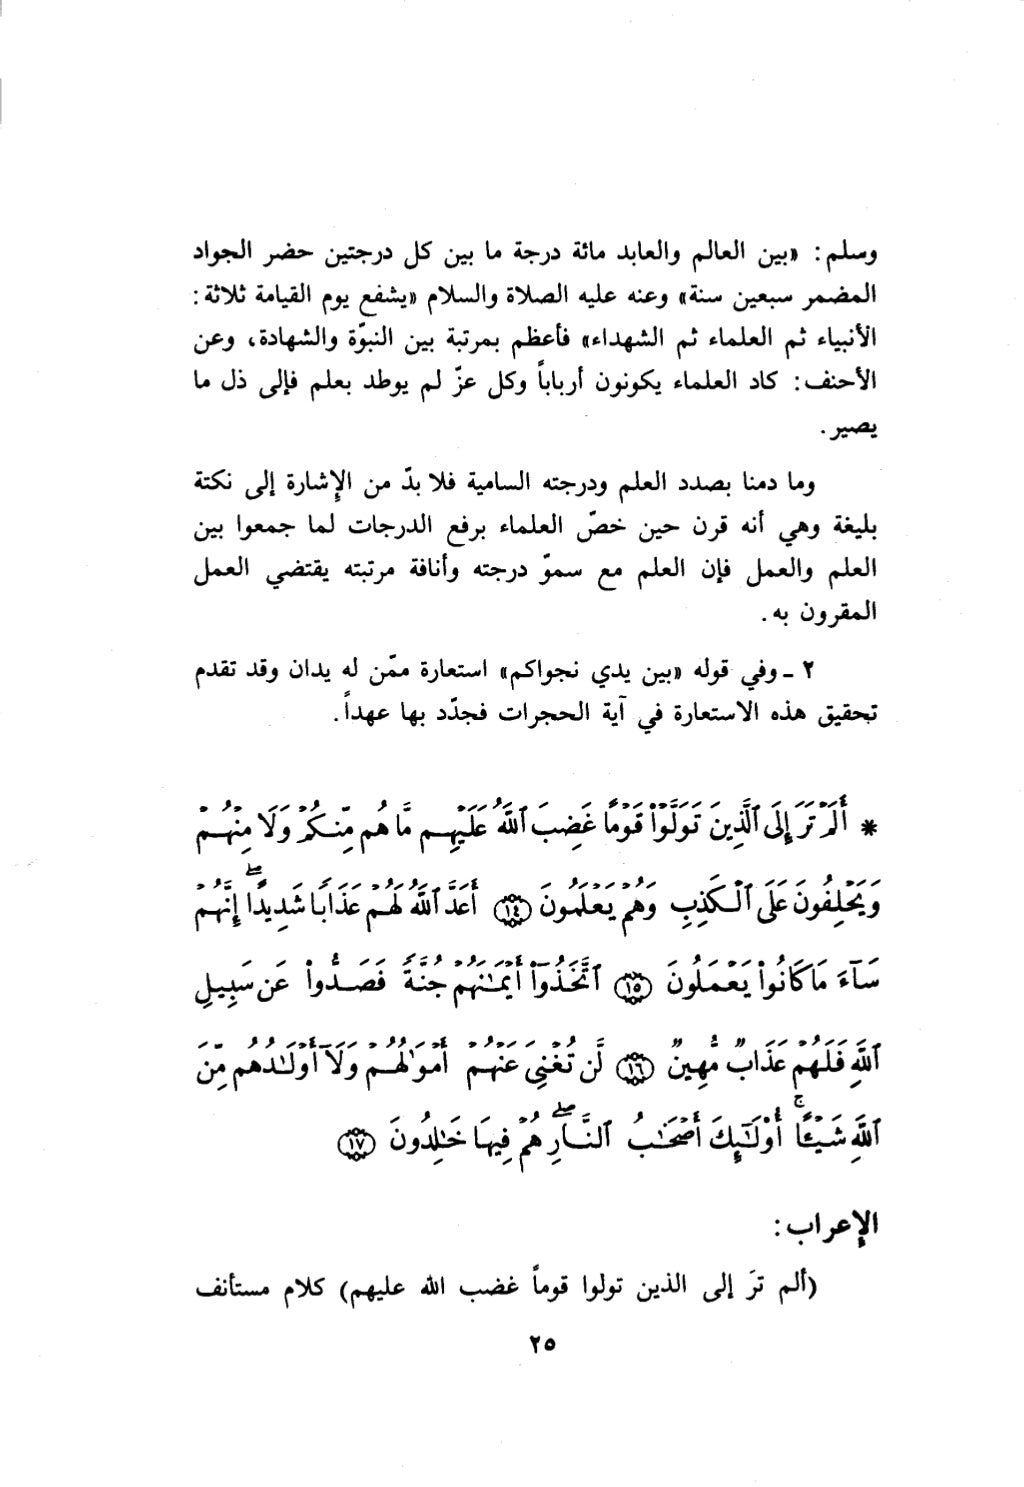 وسلم: «بين العالم والعابد مائة درجة ما بين كل درجتين حضر الجواد
المضمر سبعين سنة» وعنه عليه الصلاة والسلام «يشفع يوم القيامة ثلاثة:
الأنبياء ثم العلماء ثم الشهداء» فأعظم بمرتبة بين النبوّة والشهادة، وعن
الأحنف: كاد العلماء يكونون أرباباً وكل عزّ لم يوطد بعلم فإلى ذل ما
يصير.
وما دمنا بصدد العلم ودرجته السامية فلا بدّ من الإشارة إلى نكتة
بليغة وهي أنه قرن حين خصّ العلماء برفع الدرجات لما جمعوا بين
العلم والعمل فإن العلم مع سموّ درجته وأنافة مرتبته يقتضي العمل
المقرون به.
٢ ـ وفي قوله «بين يدي نجواكم» استعارة ممّن له يدان وقد تقدم
تحقيق هذه الاستعارة في آية الحجرات فجدّد بها عهداً.
* أَلَمۡ تَرَ إِلَى ٱلَّذِينَ تَوَلَّوۡاْ قَوۡمًا غَضِبَ ٱللَّهُ عَلَيۡهِم مَّا هُم مِّنكُمۡ وَلَا مِنۡهُمۡ
وَيَحۡلِفُونَ عَلَى ٱلۡكَذِبِ وَهُمۡ يَعۡلَمُونَ ﴿١٤﴾ أَعَدَّ ٱللَّهُ لَهُمۡ عَذَابًا شَدِيدًاۖ إِنَّهُمۡ
سَآءَ مَا كَانُواْ يَعۡمَلُونَ ﴿١٥﴾ ٱتَّخَذُوٓاْ أَيۡمَٰنَهُمۡ جُنَّةً فَصَدُّواْ عَن سَبِيلِ
ٱللَّهِ فَلَهُمۡ عَذَابٌ مُّهِينٌ ﴿١٦﴾ لَّن تُغۡنِيَ عَنۡهُمۡ أَمۡوَٰلُهُمۡ وَلَآ أَوۡلَٰدُهُم مِّنَ
ٱللَّهِ شَيۡـًٔاۚ أُوْلَٰٓئِكَ أَصۡحَٰبُ ٱلنَّارِۖ هُمۡ فِيهَا خَٰلِدُونَ ﴿١٧﴾
الإعراب:
(ألم ترَ إلى الذين تولوا قوماً غضب الله عليهم) كلام مستأنف
٢٥